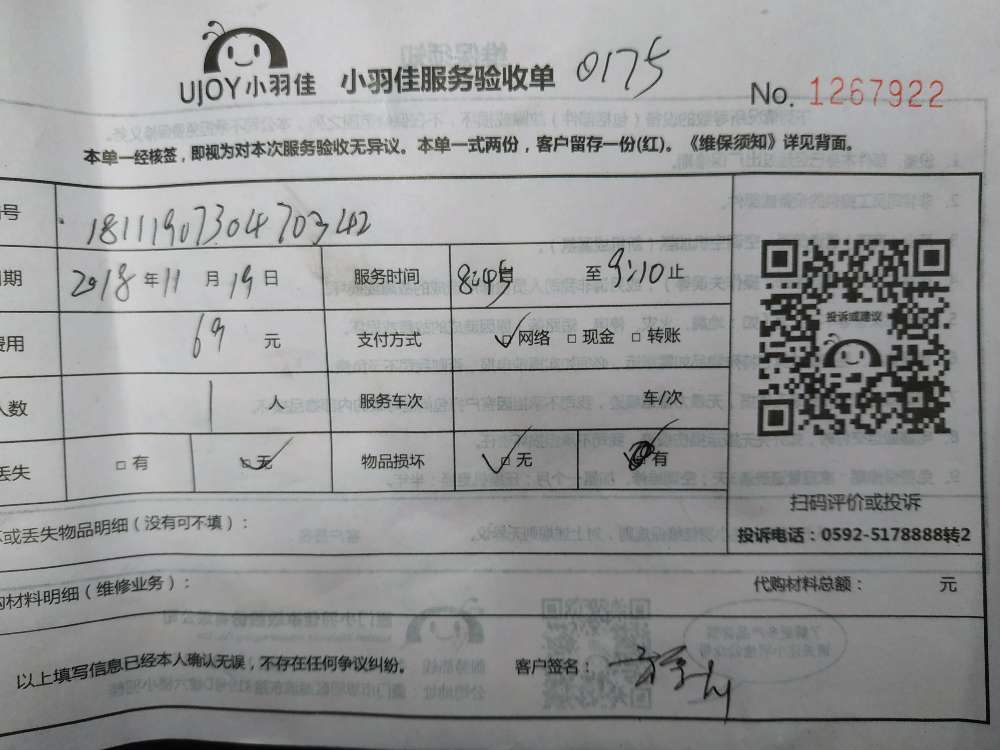 UJOY小羽佳 小羽佳服务验收单 0175
No. 1267922
本单一经核签，即视为对本次服务验收无异议。本单一式两份，客户留存一份(红)。《维保须知》详见背面。
号 18111907304470342
期 2018 年 11 月 19 日 服务时间 8:45 至 9:10 止
费用 69 元 支付方式 网络 现金 转账
人数 1 人 服务车次 车/次
丢失 有 无 物品损坏 无 有
投诉或建议
扫码评价或投诉
投诉电话：0592-5178888转2
坏或丢失物品明细（没有可不填）：
购材料明细（维修业务）： 代购材料总额： 元
以上填写信息已经本人确认无误，不存在任何争议纠纷。 客户签名：